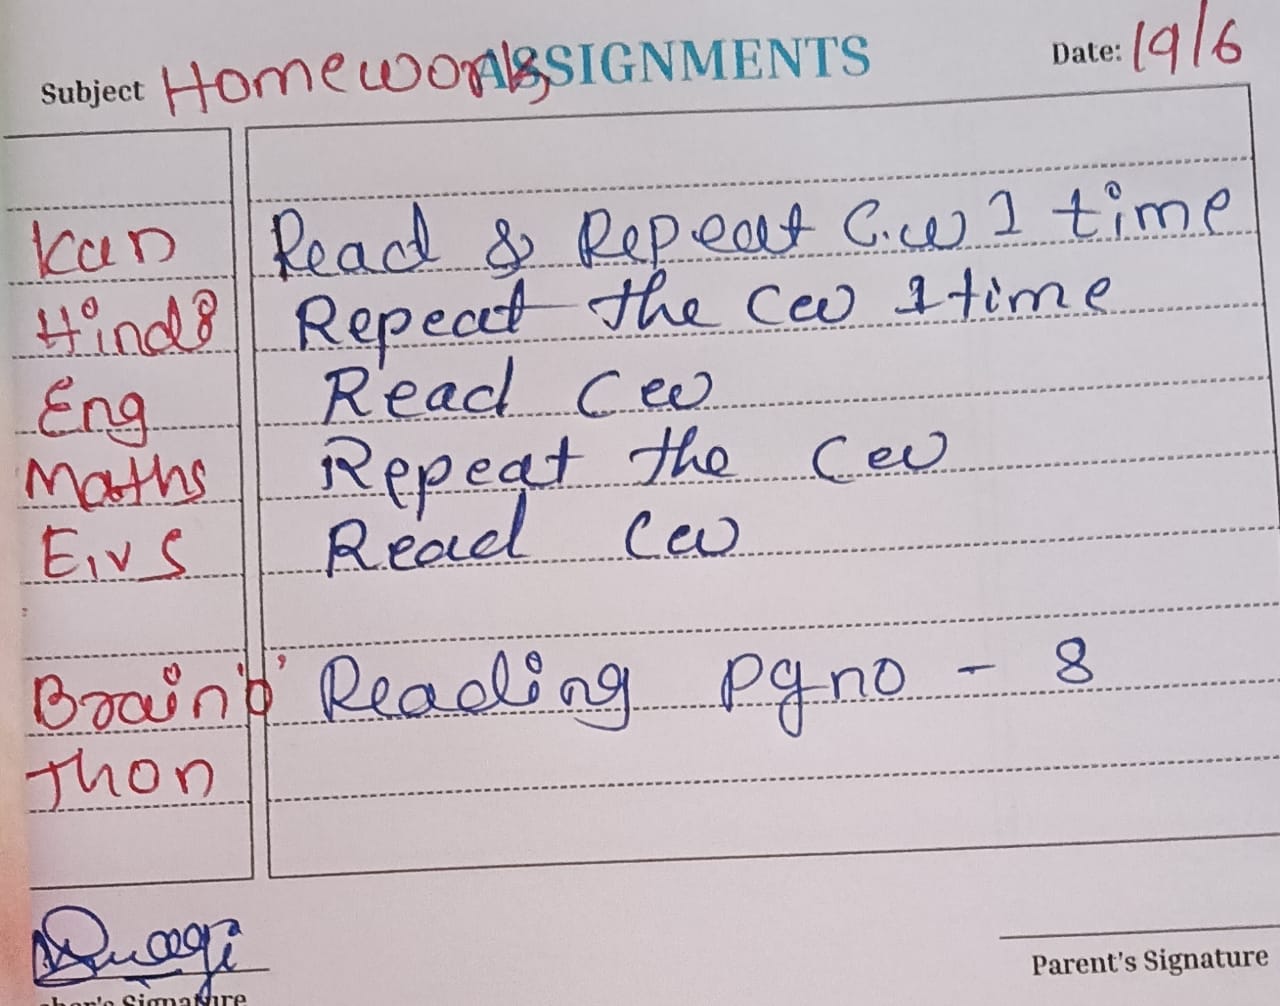 Subject Homework ASSIGNMENTS Date: 19/6
Kan Read & Repeat C.w 1 time
Hindi Repeat the Cw 1 time
Eng Read Cw
Maths Repeat the Cw
E,v S Read Cw
Brain'b' Reading pg no - 8
Thon
Parent's Signature
Signature